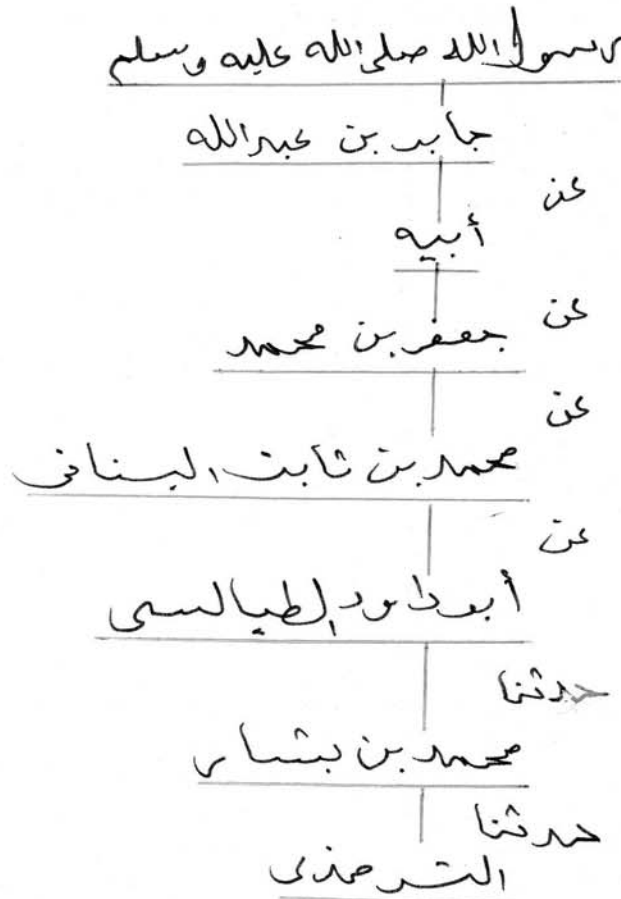 رسول الله صلى الله عليه وسلم
جابر بن عبدالله
عن
أبيه
عن
جعفر بن محمد
عن
محمد بن ثابت البناني
عن
أبو داود الطيالسى
حدثنا
محمد بن بشار
حدثنا
الترمذى